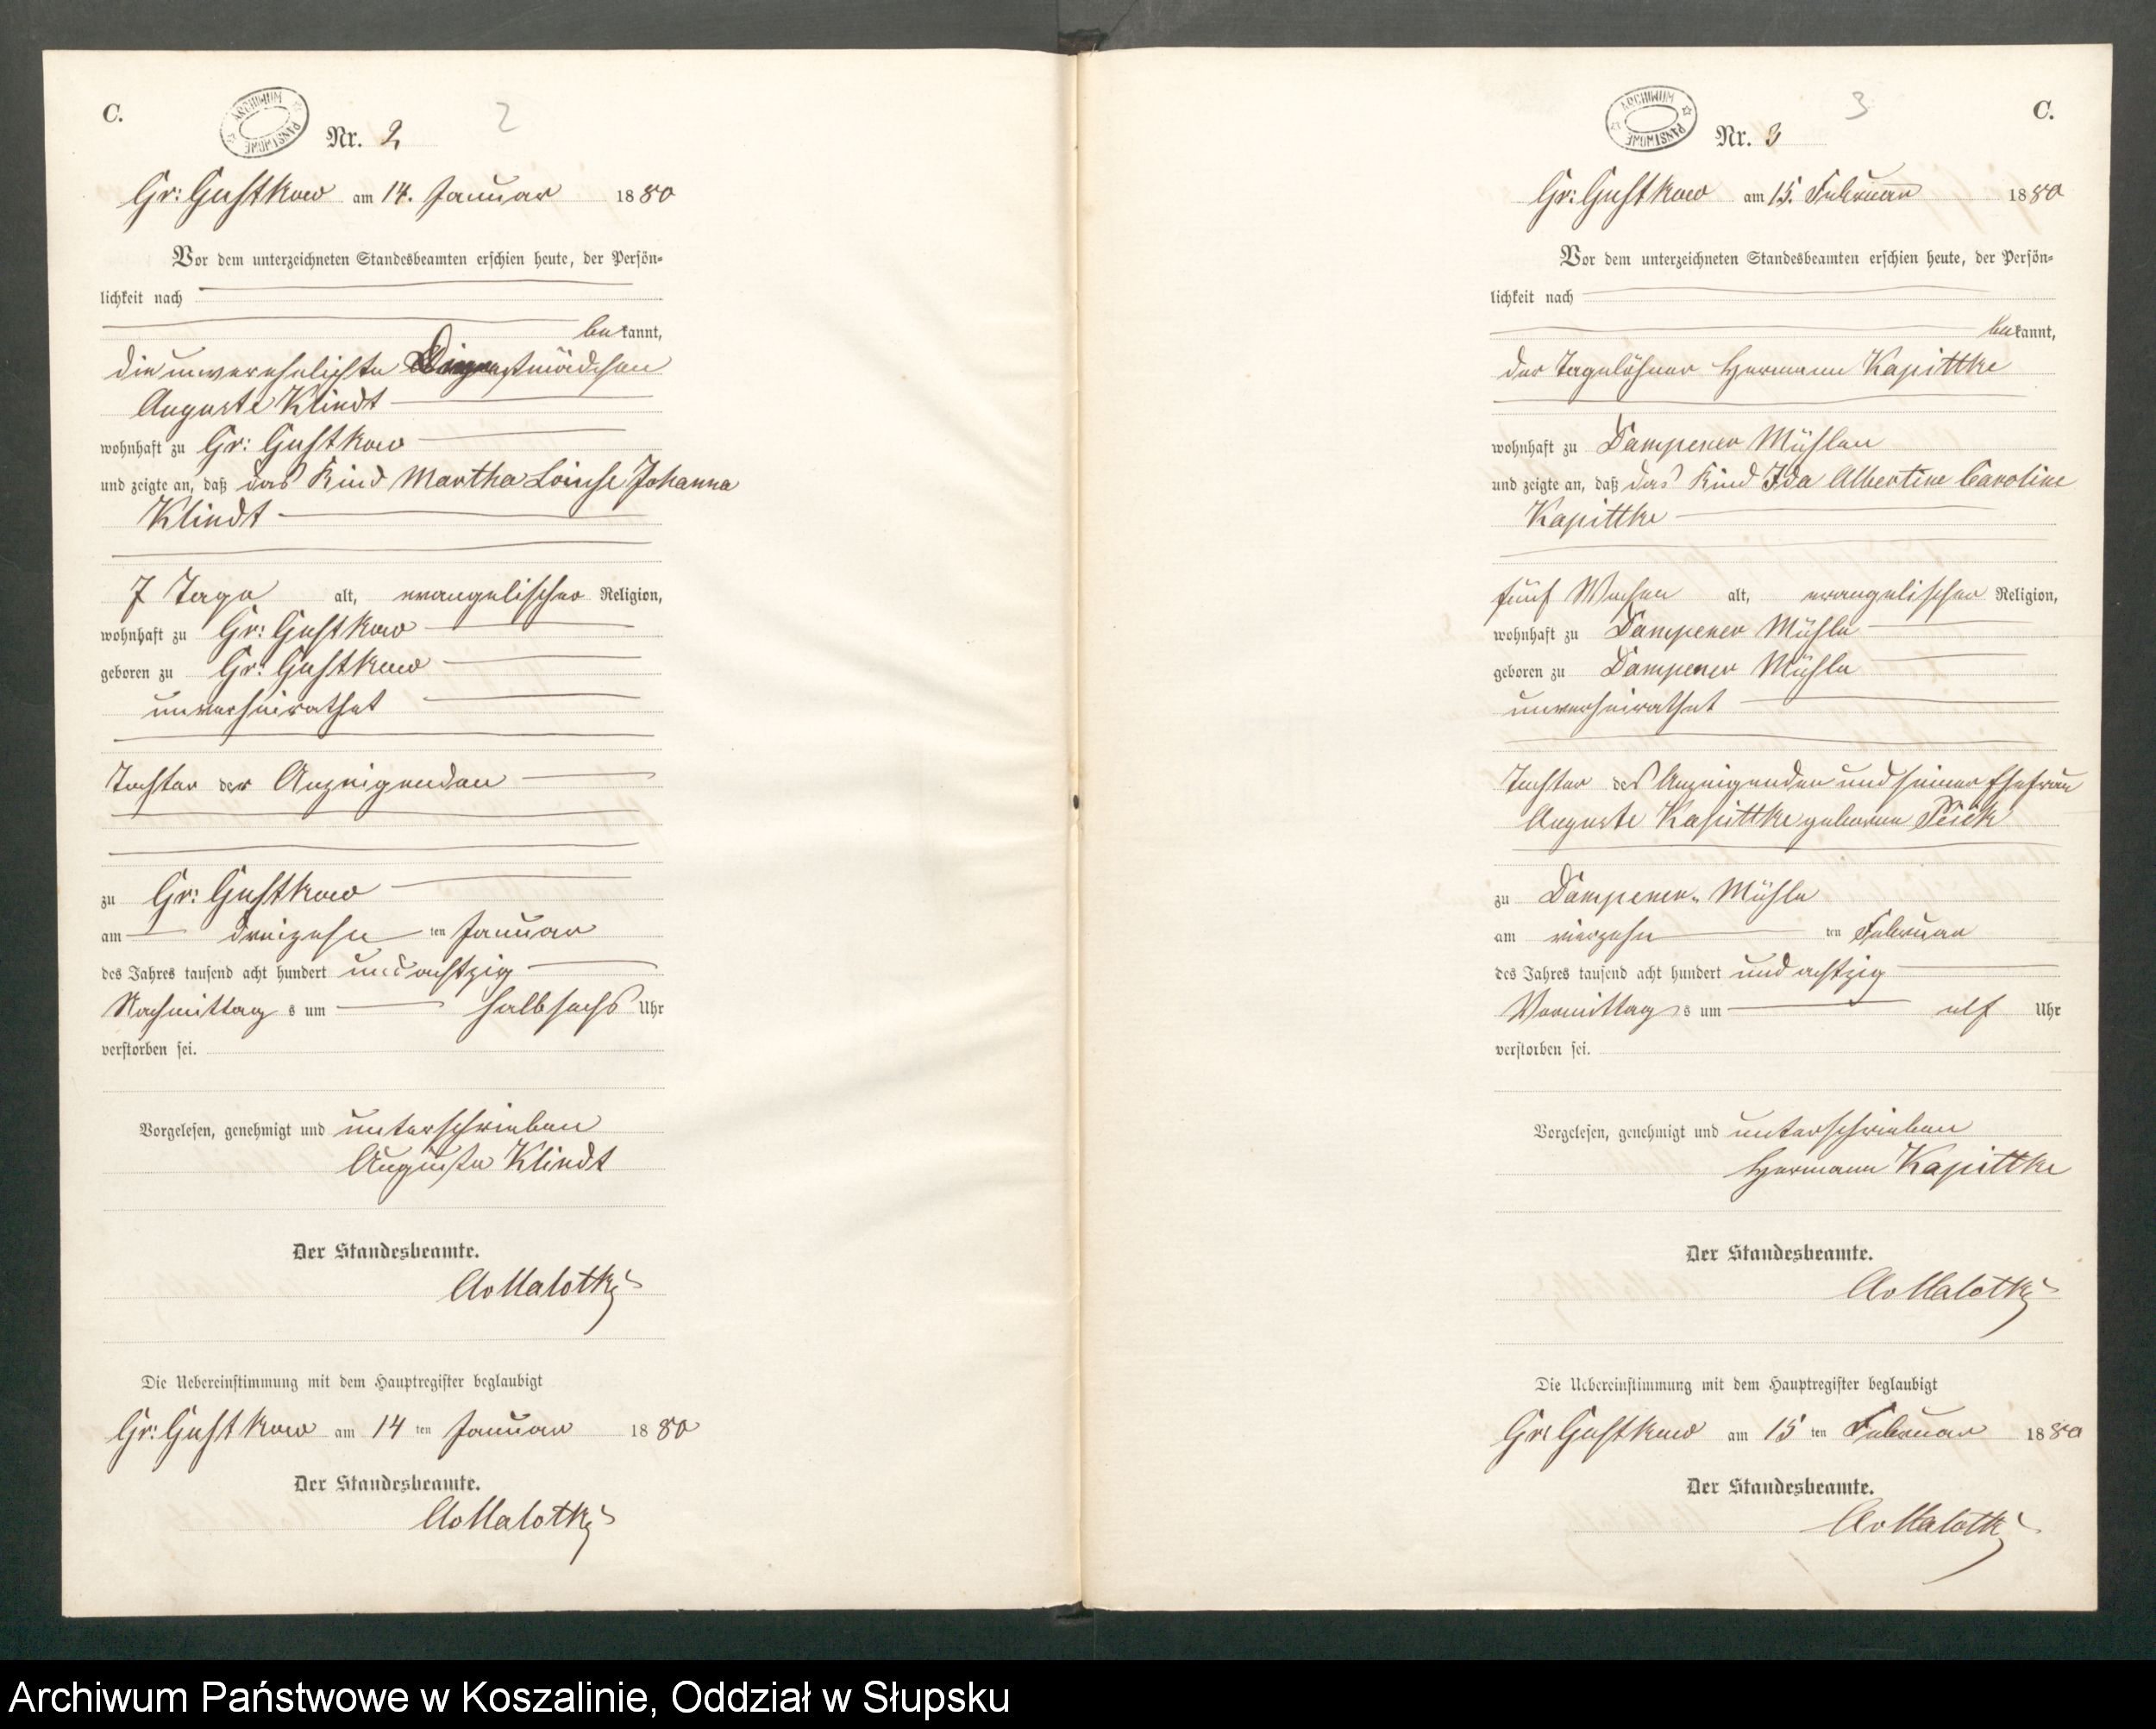 C.
ARCHIWUM PAŃSTWOWE
2
Nr. 2
Gr: Gustkow am 14. Januar 1880
Vor dem unterzeichneten Standesbeamten erschien heute, der Persön-
lichkeit nach
bekannt,
die unverehelichte Dienstmädchen
Auguste Klindt
wohnhaft zu Gr: Gustkow
und zeigte an, daß das Kind Martha Louise Johanna
Klindt
7 Tage alt, evangelischer Religion,
wohnhaft zu Gr: Gustkow
geboren zu Gr: Gustkow
unverheirathet
Tochter der Anzeigenden
zu Gr: Gustkow
am dreizehn ten Januar
des Jahres tausend acht hundert und achtzig
Nachmittags um halb sechs Uhr
verstorben sei.
Vorgelesen, genehmigt und unterschrieben
Auguste Klindt
Der Standesbeamte.
AvMalotky
Die Uebereinstimmung mit dem Hauptregister beglaubigt
Gr: Gustkow am 14 ten Januar 1880
Der Standesbeamte.
AvMalotky
ARCHIWUM PAŃSTWOWE
3
C.
Nr. 3
Gr: Gustkow am 15. Februar 1880
Vor dem unterzeichneten Standesbeamten erschien heute, der Persön-
lichkeit nach
bekannt,
der Tagelöhner Hermann Kapittke
wohnhaft zu Dampener Mühlen
und zeigte an, daß das Kind Ida Albertine Caroline
Kapittke
fünf Wochen alt, evangelischer Religion,
wohnhaft zu Dampener Mühle
geboren zu Dampener Mühle
unverheirathet
Tochter des Anzeigenden und seiner Ehefrau
Auguste Kapittke geborene
zu Dampener Mühle
am vierzehn ten Februar
des Jahres tausend acht hundert und achtzig
Vormittags um elf Uhr
verstorben sei.
Vorgelesen, genehmigt und unterschrieben
Hermann Kapittke
Der Standesbeamte.
AvMalotky
Die Uebereinstimmung mit dem Hauptregister beglaubigt
Gr: Gustkow am 15 ten Februar 1880
Der Standesbeamte.
AvMalotky
Archiwum Państwowe w Koszalinie, Oddział w Słupsku